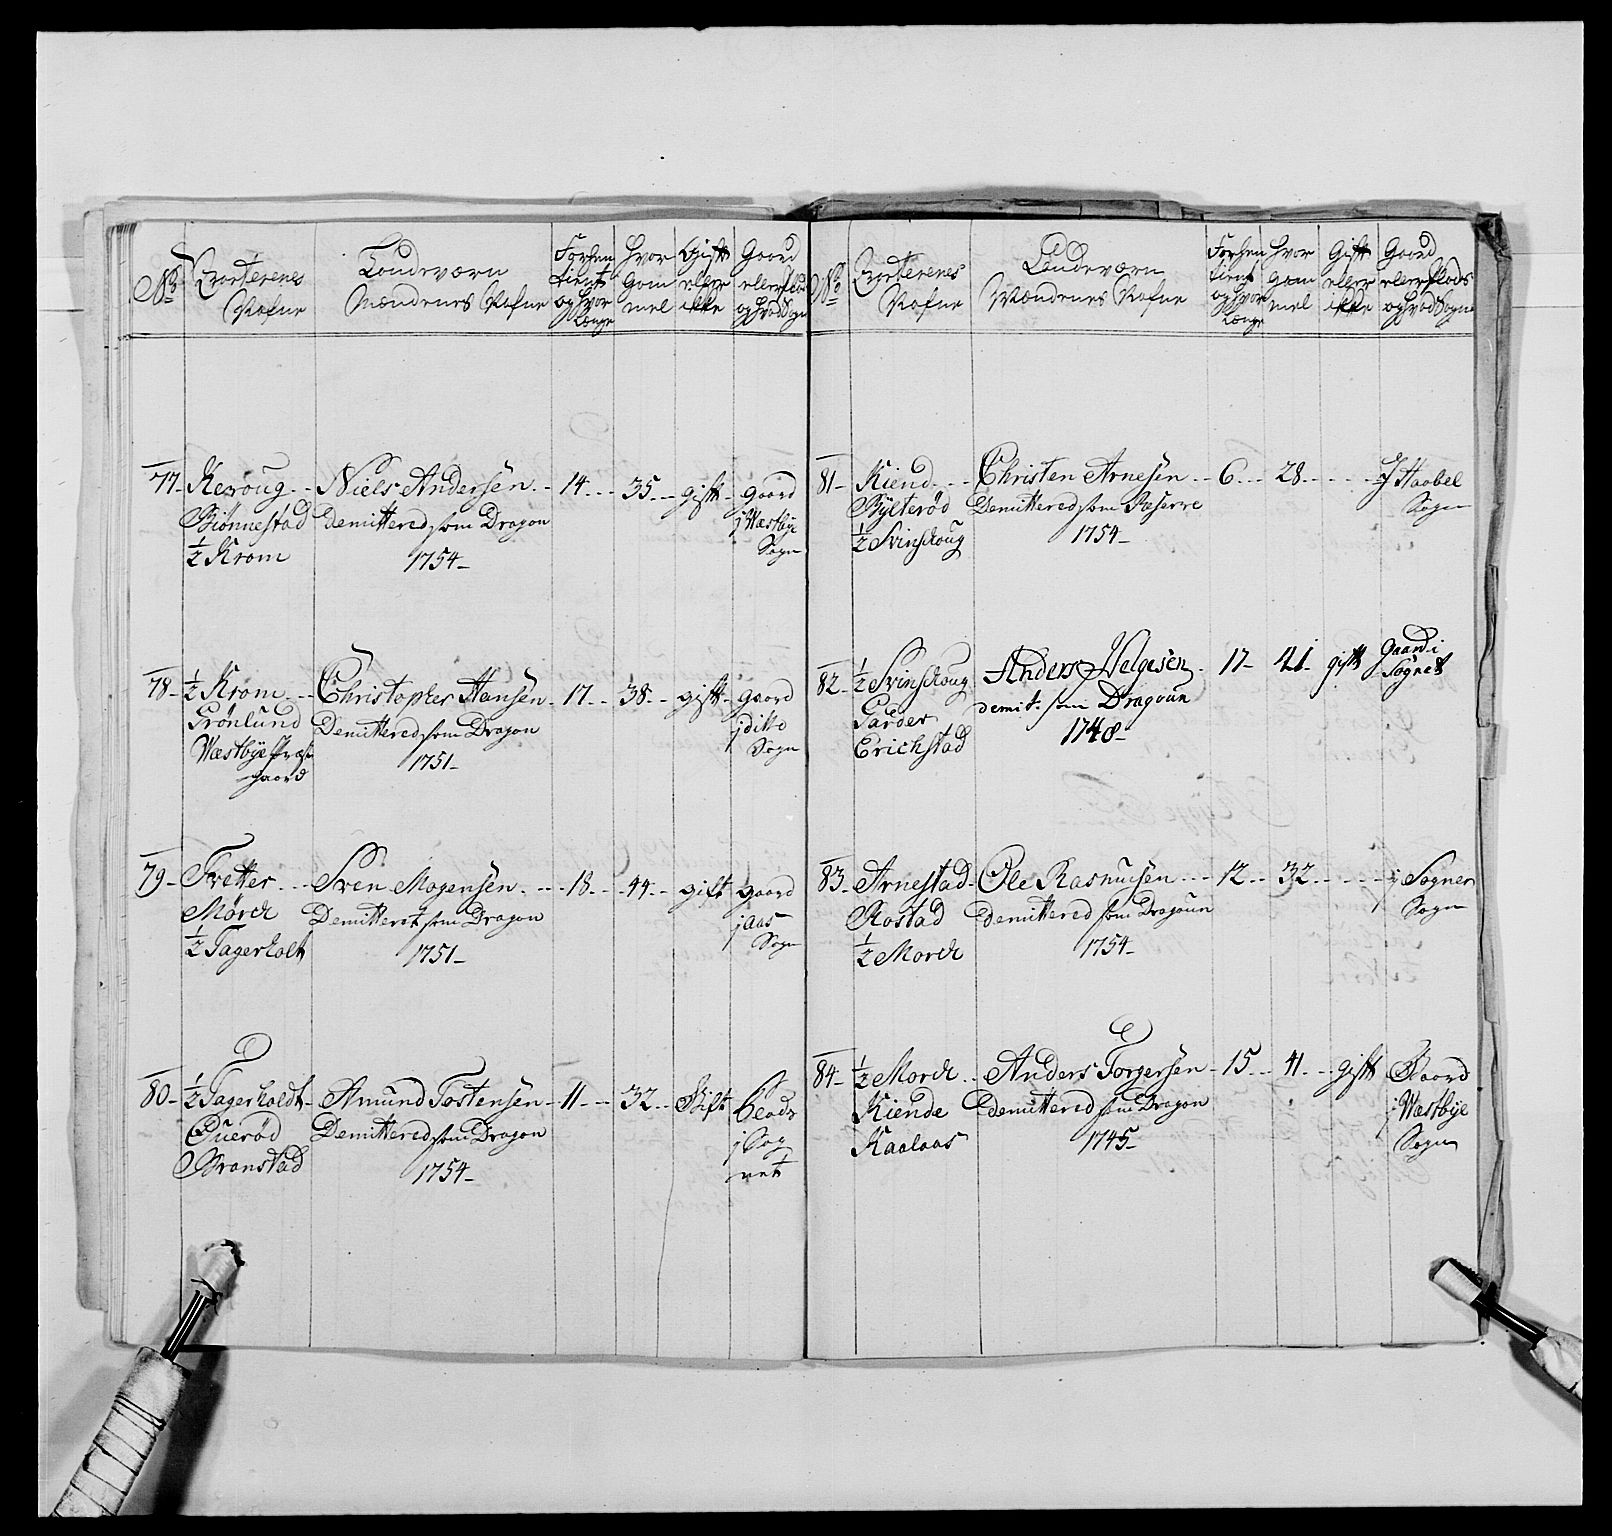 No
Qvarterenes
Nafne
Landeværn
Mændenes Nafne
Forhen
tient
og hvor
Længe
Hvor
gam
mel
Gift
eller
ikke
Gaard
eller
og hvad Sogn
77 Kexoug
Biönnestad
½ Krom
Niels Andersen
Demittered som Dragon
1754
14
35
gift
gaard
i Wæstbye
Sogn
78 ½ Krom
Grönlund
Wæstbye Præste
gaard
Christopher Hansen
Demittered som Dragon
1751
17
38
gift
gaard
i ditto
Sogn
79 Tvetter
Mörck
½ Tagerholt
Sven Mogensen
Demitteret som Dragon
1751
18
44
gift
gaard
i Aas
Sogn
80 ½ Tagerholdt
Ouerød
Granstad
Amund Tostensen
Demittered som Dragon
1754
11
32
Gift
i Sog
net
No
Qvarterenes
Nafne
Landeværn
Mændenes Nafne
Forhen
tient
og hvor
Længe
hvor
gam
mel
Gift
eller
ikke
Gaard
eller Plads
og hvad Sogn
81 Kiend
Bylterød
½ Svinskoug
Christen Arnesen
Demittered som Reserve
1754
6
28
I Haabel
Sogn
82 ½ Svinskoug
Garder
Erichstad
Anders Helgesen
demit: som Dragoun
1748
17
41
gift
Gaard i
Sognet
83 Arnestad
Rostad
½ Morck
Ole Rasmusen
Demittered som Dragoun
1754
12
32
i Sogner
Sogn
84 ½ Morck
Kiende
Kaalaas
Anders Torgersen
Demittered som Dragon
1745
15
41
gift
Gaard
i Wæstbye
Sogn